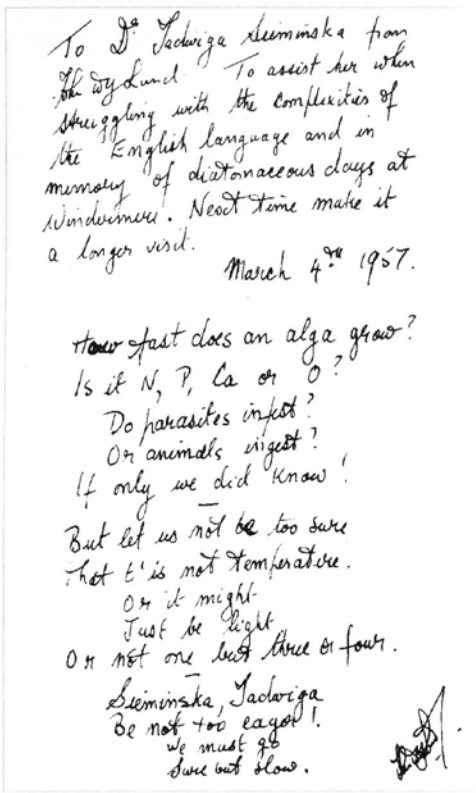 To Dr Jadwiga Sieminska from
John W G Lund. To assist her when
struggling with the complexities of
the English language and in
memory of diatomaceous days at
Windermere. Next time make it
a longer visit.
March 4th 1957.
How fast does an alga grow?
Is it N, P, Ca or O?
Do parasites infest?
Or animals ingest?
If only we did know!
But let us not be too sure
That t'is not temperature.
Or it might
Just be light
Or not one but three or four.
Sieminska, Jadwiga
Be not too eager!
We must go
Sure but slow.